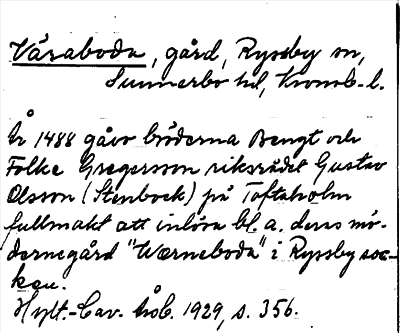 Väraboda, gård, Ryssby sn,
Sunnerbo hd, Kronob. l.
År 1488 gåvo bröderna Bengt och
Folke Gregersson riksrådet Gustav
Olsson (Stenbock) på Toftaholm
fullmakt att inlösa bl. a. deras mö-
dernegård "Wærneboda" i Ryssby soc-
ken.
Hylt.-Cav. håb. 1929, s. 356.